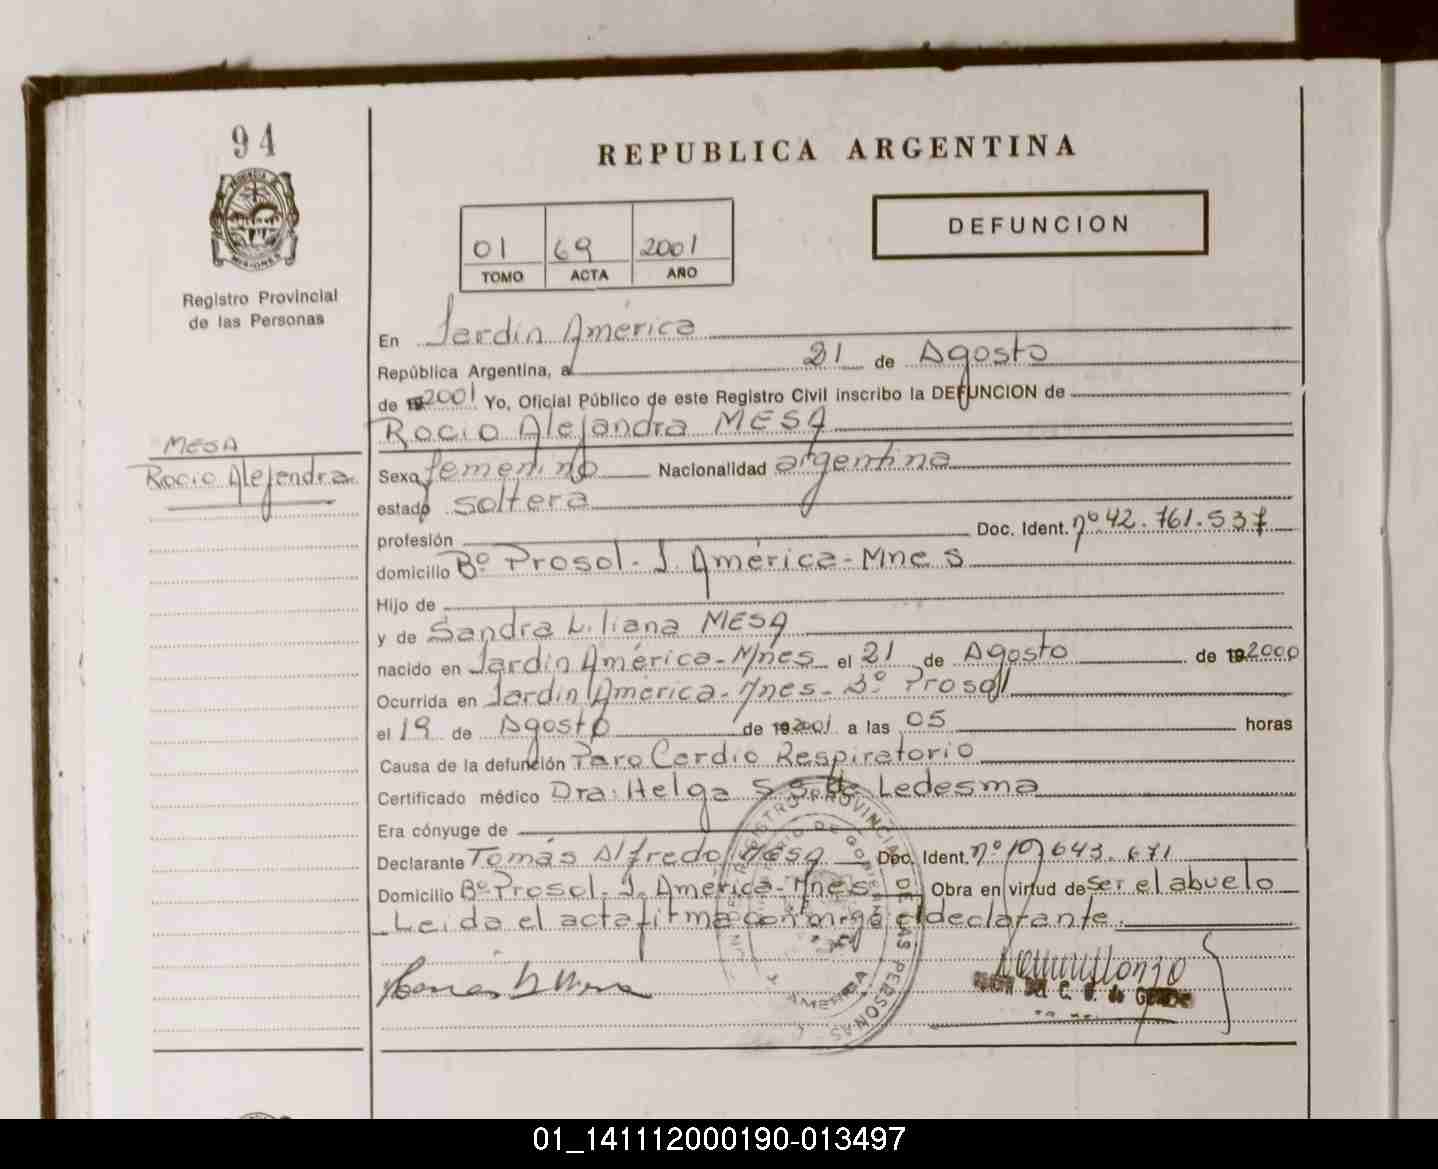 94
REPUBLICA ARGENTINA
PROVINCIA DE
MISIONES
Registro Provincial
de las Personas
01 69 2001
TOMO ACTA AÑO
DEFUNCION
En Jardín América
República Argentina, a 21 de Agosto
de 19 2001 Yo, Oficial Público de este Registro Civil inscribo la DEFUNCION de
Rocio Alejandra MESA
MESA
Rocio Alejandra
Sexo femenino Nacionalidad argentina
estado soltera
profesión Doc. Ident. nº 42.761.537
domicilio Bº Prosol - J. América - Mnes
Hijo de
y de Sandra Liliana MESA
nacido en Jardín América - Mnes el 21 de Agosto de 19 2000
Ocurrida en Jardín América - Mnes - Bº Prosol
el 19 de Agosto de 19 2001 a las 05 horas
Causa de la defunción Paro Cardio Respiratorio
Certificado médico Dra. Helga S. S. de Ledesma
Era cónyuge de
Declarante Tomás Alfredo Mesa Doc. Ident. nº 643.671
Domicilio Bº Prosol - J. America - Mnes Obra en virtud de ser el abuelo
Leida el acta firma conmigo el declarante.
REGISTRO PROVINCIAL DE LAS PERSONAS
J. AMERICA
01_141112000190-013497